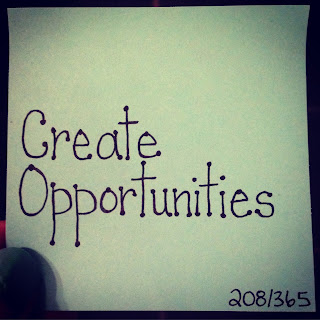 Create
Opportunities
208/365